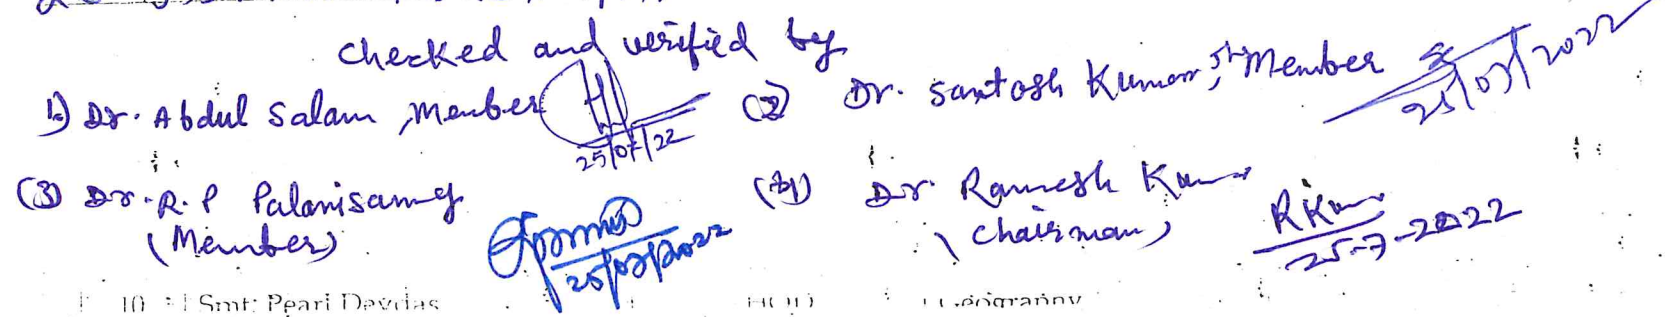 checked and verified by
1) Dr. Abdul Salam, Member
25/07/22
(2) Dr. Santosh Kumar, Member
25/07/2022
(3) Dr. R.P Palanisamy
(Member)
25/07/2022
(4) Dr. Ramesh Kumar
(Chairman)
RKum
25-7-2022
10 Smt: Pearl Devdas HOD Geography